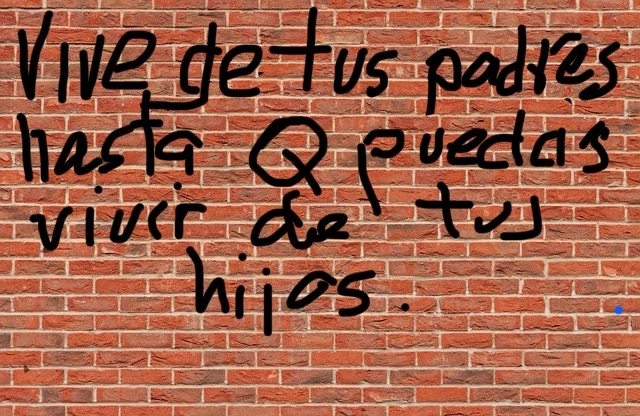 Vive de tus padres
hasta Q puedas
vivir de tus
hijos.